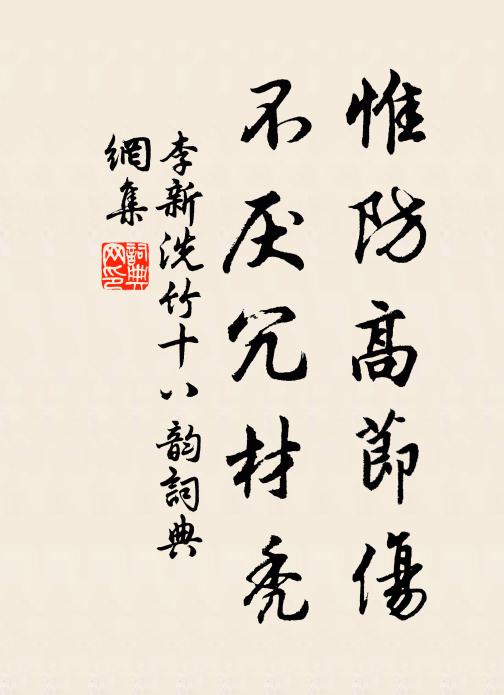 惟防高節傷
不厌冗材秃
李新洗竹十八韵詞典
網集
詞典
网印